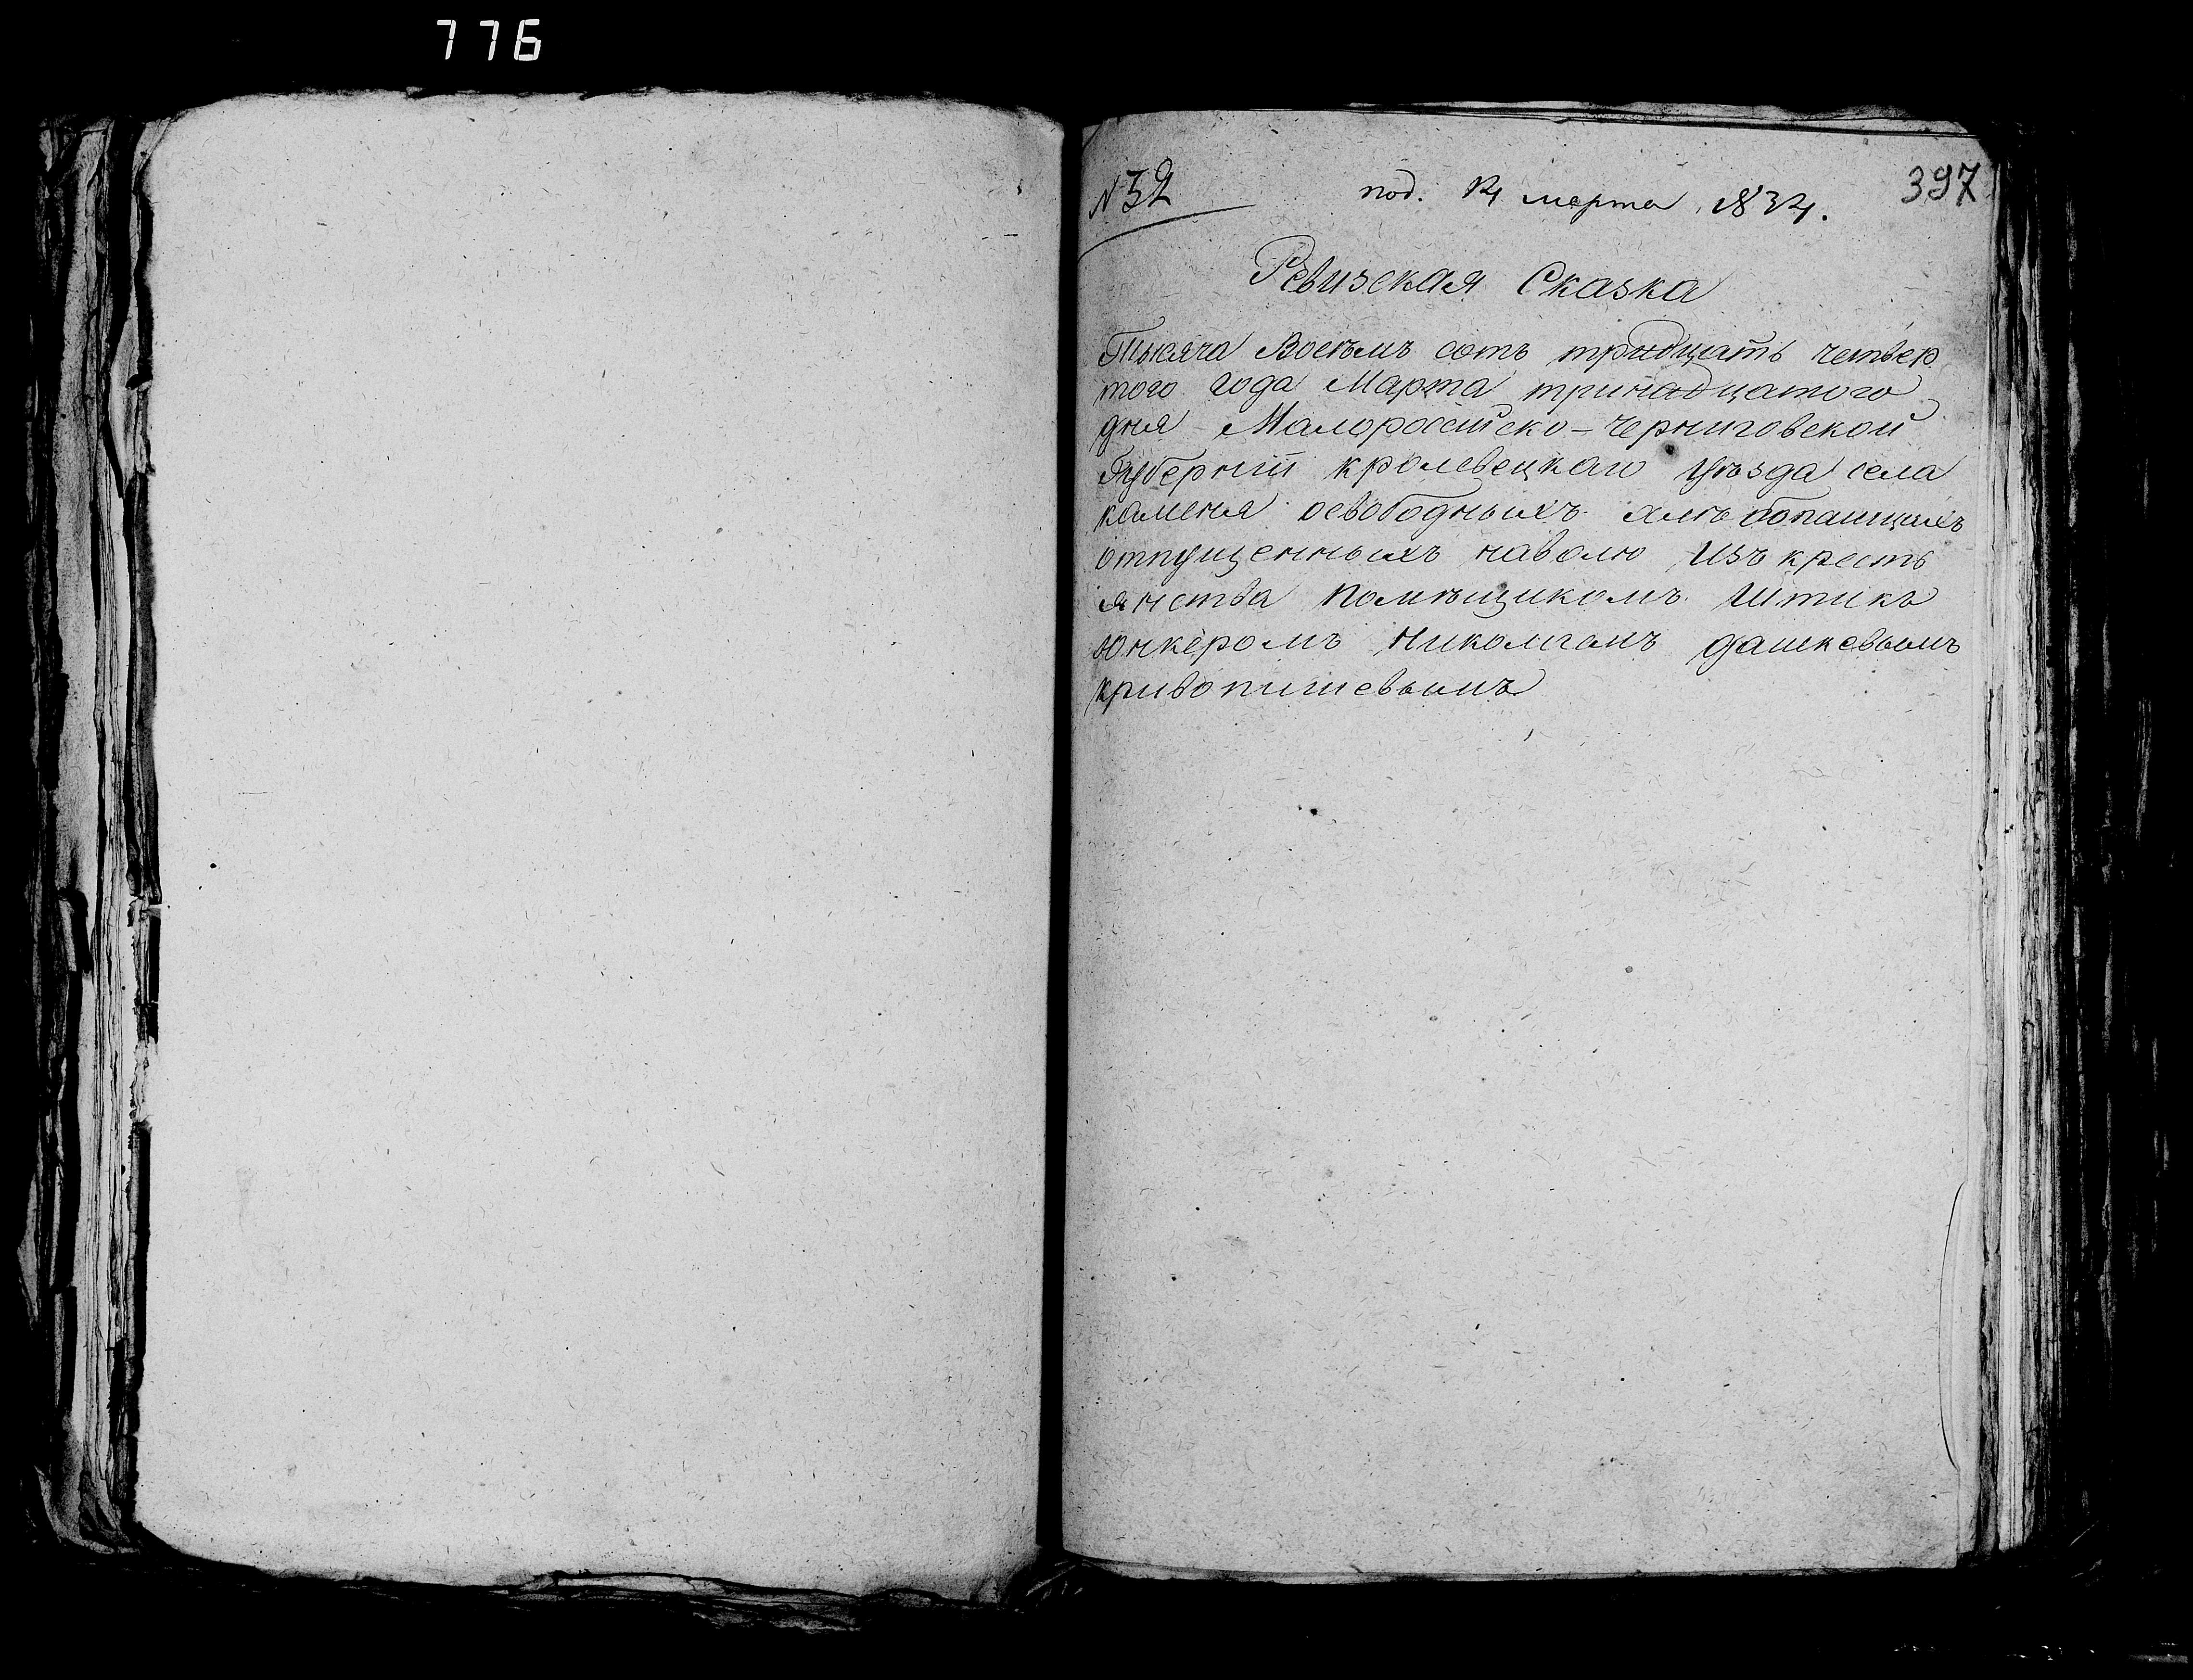 776
№ 52
под. 14 марта 1834.
397
Ревизская Сказка
Тысяча Восемъ сотъ тридцать четвер
того года Марта тринадцатого
дня Малоросийско-Черниговской
Губернии кролевецкаго уѣзда села
каменя освободныхъ хлѣбопашцахъ
отпущенныхъ наволю Изъ кресть
янства помѣщикомъ Штикъ
юнкеромъ Николаемъ дашкевымъ
кривопишевымъ